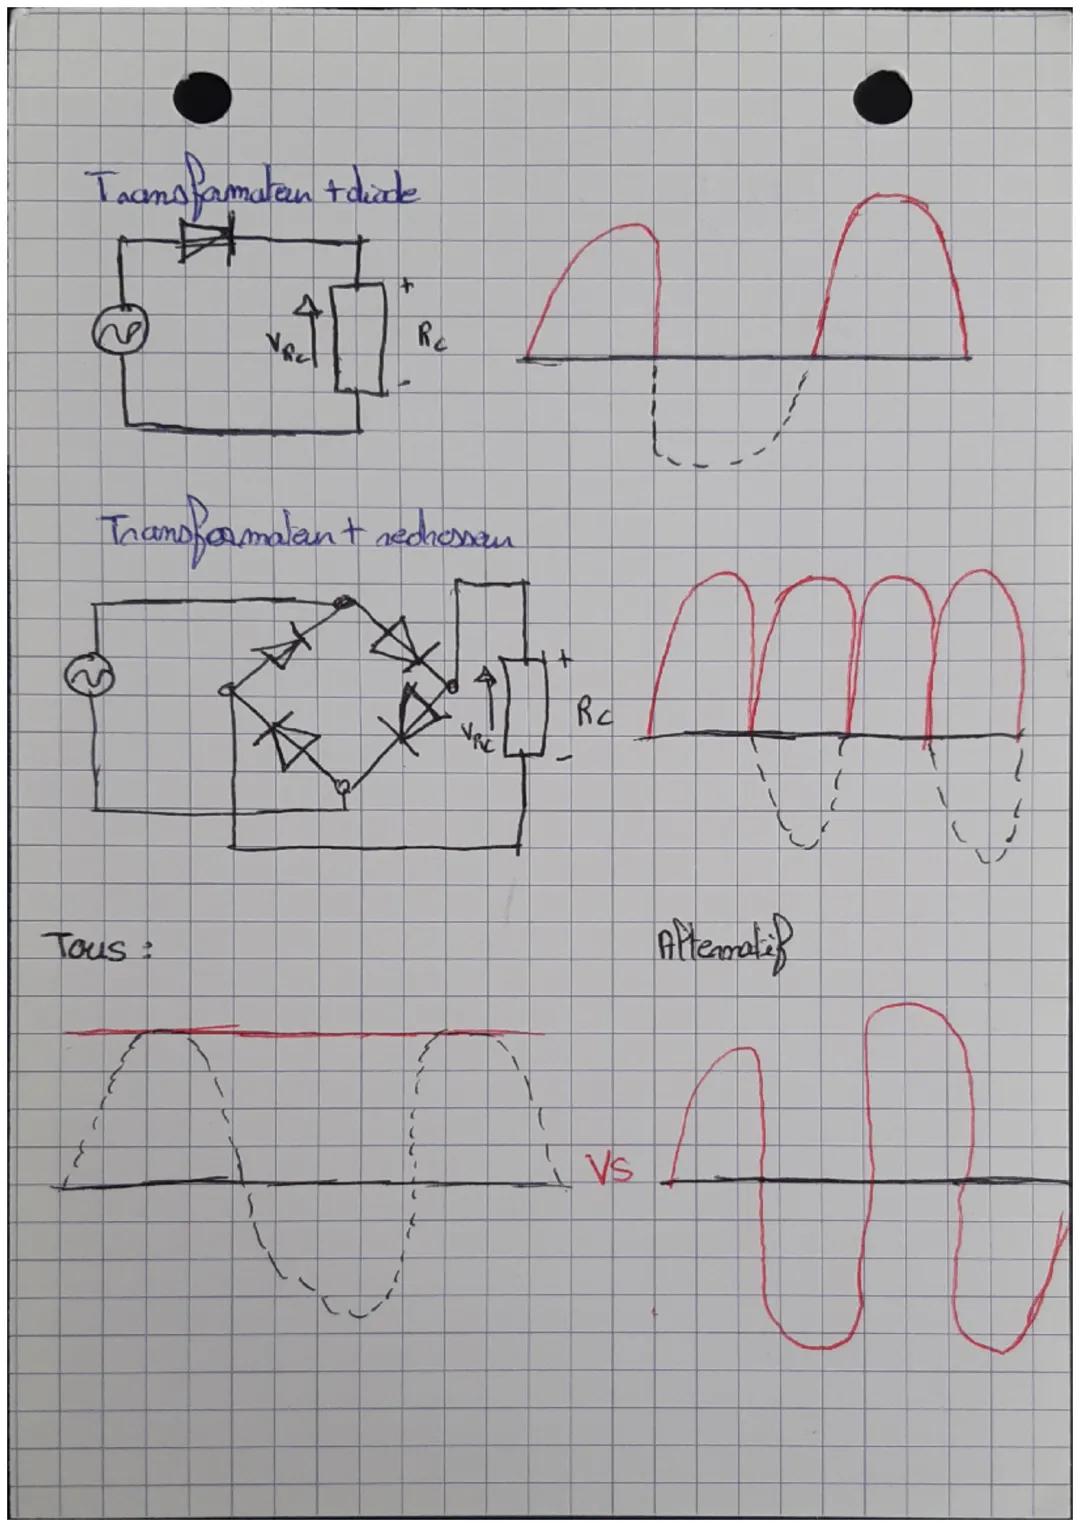 Transformateur + diode
+
VRc
Rc
-
Transformateur + redresseur
+
VRc
Rc
-
Tous :
Alternatif
VS